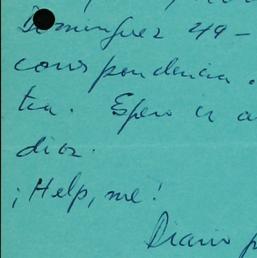 Dominguez 49-
correspondencia.
tea. Espero ir a
dios.
¡Help, me!
Diario p